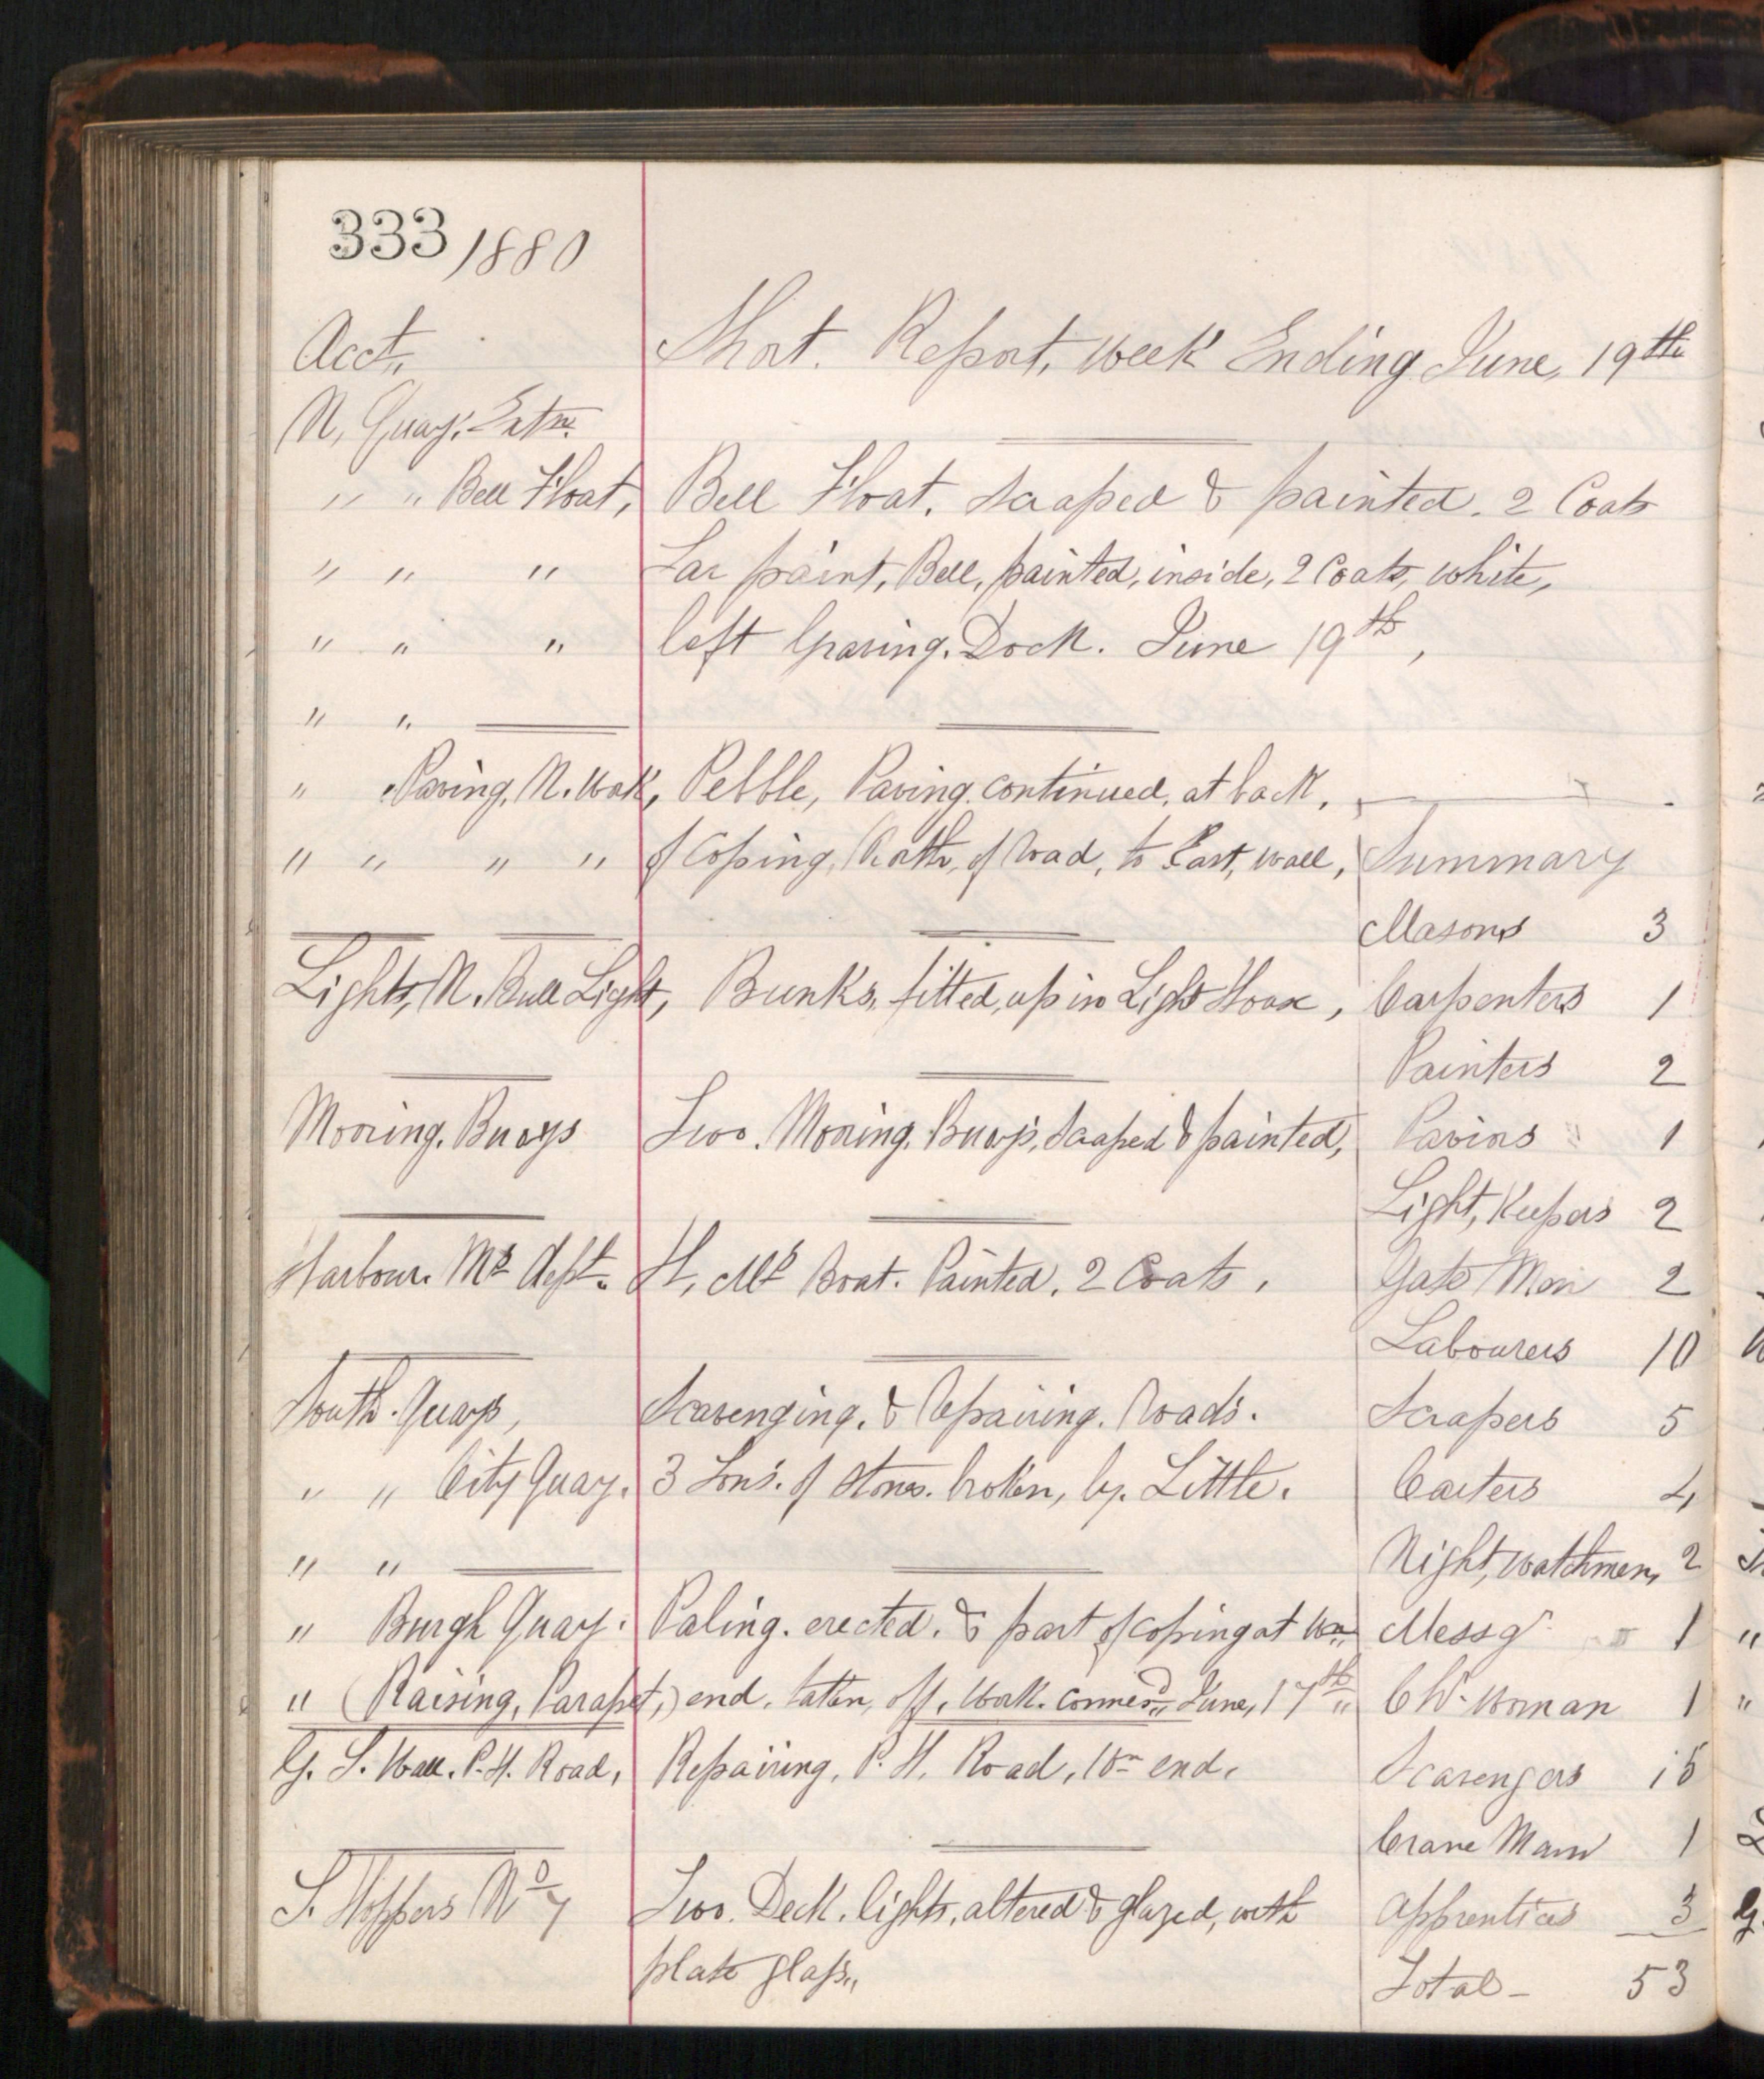 333 1880
Acct, Short. Report, Week Ending June, 19th
N, Quay. Extn.
" " Bell Float, Bell Float. Scraped & painted. 2 Coats
" " " Tar paint, Bell, painted, inside, 2 Coats, white,
" " " left Graving. Dock. June 19th,
" "
" " Paving, N. Wall, Pebble, Paving continued, at back,
" " " " of Coping, North, of Road, to East, wall,
Lights, N. Bull Light, Bunks, fitted, up in Light House,
Mooring. Buoys Two. Mooring. Buoys, Scraped & painted,
Harbour. Mr Dept. H, Mrs Boat. Painted. 2 Coats.
South. Quays, Scavenging. & Repairing. Roads.
" " City Quay. 3 Tons. of Stones. broken, by. Little.
" "
" Burgh Quay. Paling. erected. & part of coping at Wn
" (Raising, Parapet,) end. taken, off. Work. commcd,, June, 17th "
G. S. Wall. P. H. Road, Repairing, P. H. Road, Wn end.
S. Hoppers No 7 Two. Deck. lights, altered & glazed, with
plate glass,,
Summary
Masons 3
Carpenters 1
Painters 2
Paviors 1
Light, Keepers 2
Gate Men 2
Labourers 10
Scrapers 5
Carters 4
Night, Watchmen, 2
Messgr 1
C W. Woman 1
Scavengers 15
Crane Man 1
Apprentices 3
Total - 53